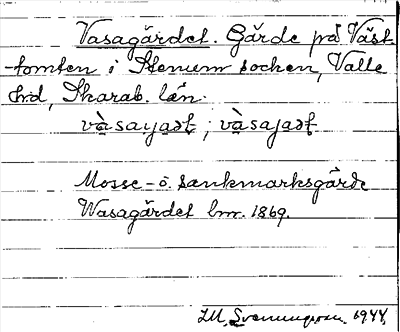 Vasagärdet. Gärde på Väst-
-tomten i Stenum socken, Valle
hd, Skarab. län.
vàsayaət ; vàsajaət
Mosse- o. sankmarksgärde
Wasagärdet lm. 1869.
I.M. Svenungsson. 1944